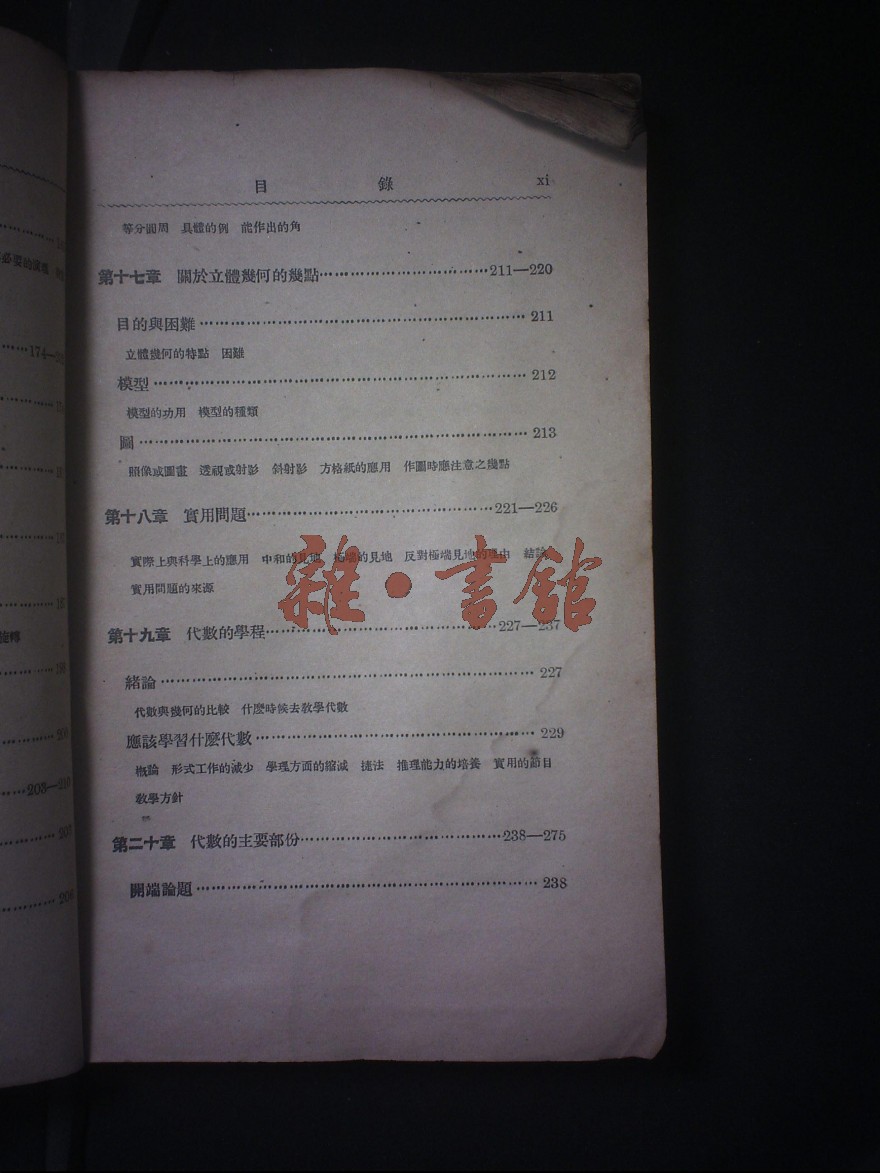 目 錄 xi
等分圓周 具體的例 能作出的角
第十七章 關於立體幾何的幾點…………………………211—220
目的與困難…………………………………………………… 211
立體幾何的特點 困難
模型…………………………………………………………… 212
模型的功用 模型的種類
圖……………………………………………………………… 213
照像或圖畫 透視或射影 斜射影 方格紙的應用 作圖時應注意之幾點
第十八章 實用問題………………………………………221—226
實際上與科學上的應用 中和的見地 極端的見地 反對極端見地的理由 結論
實用問題的來源
雜·書館
第十九章 代數的學程……………………………………227—237
緒論…………………………………………………………… 227
代數與幾何的比較 什麼時候去教學代數
應該學習什麼代數…………………………………………… 229
概論 形式工作的減少 學理方面的縮減 捷法 推理能力的培養 實用的節目
教學方針
第二十章 代數的主要部份………………………………238—275
開端論題……………………………………………………… 238
174—
203—210
207